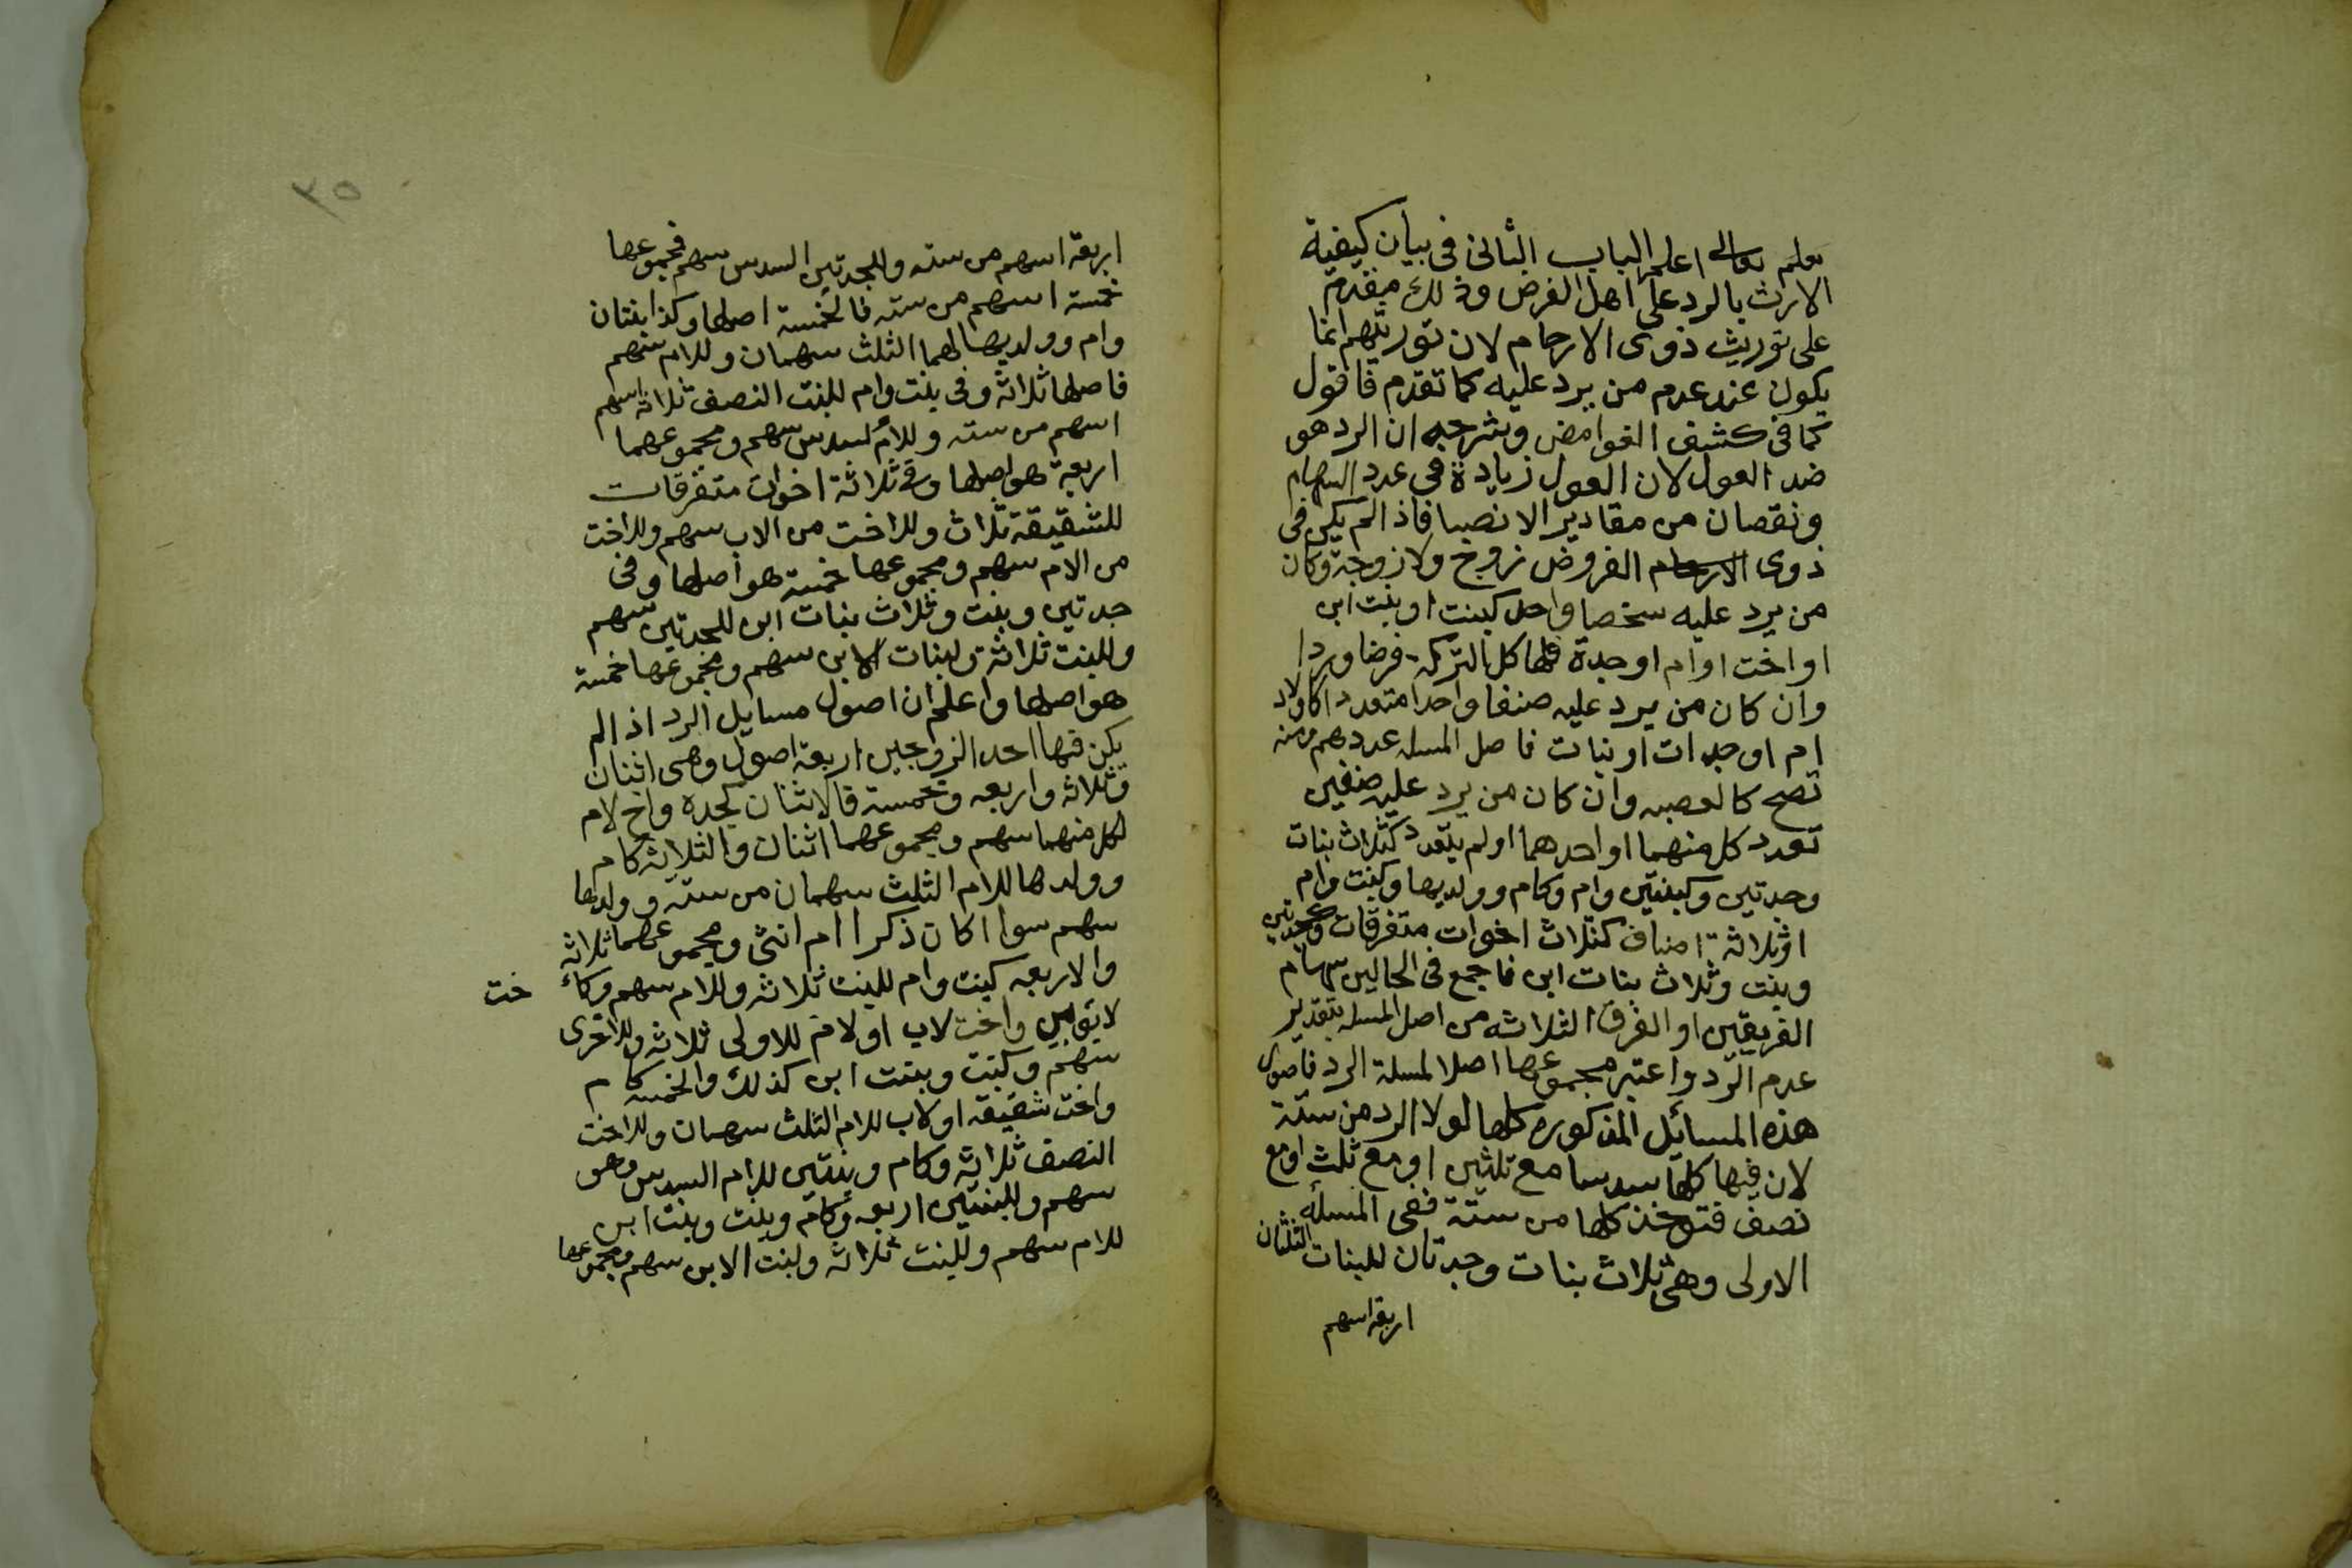 يعلم تعالى اعلم الباب الثانى فى بيان كيفية
الارث بالرد على اهل الفرض وذلك مقدم
على توريث ذوى الارحام لان توريثهم انما
يكون عند عدم من يرد عليه كما تقدم فاقول
كما فى كشف الغوامض وشرحه ان الرد هو
ضد العول لان العول زيادة فى عدد السهام
ونقصان من مقادير الانصبا فاذالم يكن فى
ذوى الارحام الفروض زوج ولا زوجة وكان
من يرد عليه شخصا واحدا كبنت او بنت ابن
او اخت او ام او جدة فلها كل التركة فرضا وردا
وان كان من يرد عليه صنفا واحدا متعددا كاولاد
ام او جدات او بنات فاصل المسله عددهم ومنه
تصح كالعصبه وان كان من يرد عليه صنفين
تعدد كل منهما او احدهما او لم يتعدد كثلاث بنات
وجدتين وكبنتين وام وكام وولديها وكبنت وام
او ثلاثة اصناف كثلاث اخوات متفرقات وجدتين
وبنت وثلاث بنات ابن فاجمع فى الحالين سهام
الفريقين او الفرق الثلاثه من اصل المسله بتقدير
عدم الرد واعتبر مجموعها اصلا لمسلة الرد فاصول
هذه المسائل المذكوره كلها لولا الرد من ستة
لان فيها كلها سدسا مع ثلثين او مع ثلث او مع
نصف فتوخذ كلها من ستة ففى المسئله
الاولى وهى ثلاث بنات وجدتان للبنات الثلثان
اربعة اسهم
٣٥
اربعة اسهم من سته وللجدتين السدس سهم فمجموعها
خمسة اسهم من سته فالخمسة اصلها وكذا بنتان
وام وولديها لهما الثلث سهمان وللام سهم
فاصلها ثلاثه وفى بنت وام للبنت النصف ثلاثة اسهم
اسهم من سته وللام السدس سهم ومجموعهما
اربعة هو اصلها وفى ثلاثة اخوات متفرقات
للشقيقة ثلاث وللاخت من الاب سهم وللاخت
من الام سهم ومجموعها خمسة هو اصلها وفى
جدتين وبنت وثلاث بنات ابن للجدتين سهم
وللبنت ثلاثة ولبنات الابن سهم ومجموعها خمسة
هو اصلها واعلم ان اصول مسايل الرد اذالم
يكن فيها احد الزوجين اربعة اصول وهى اثنان
وثلاثه واربعه وخمسة فالاثنان كجده واخ لام
لكل منهما سهم ومجموعهما اثنان والثلاثة كام
وولدها للام الثلث سهمان من ستة وولدها
سهم سوا اكان ذكرا ام انثى ومجموعهما ثلاثه
والاربعه كبنت وام للبنت ثلاثه وللام سهم وكا خت
لابوين واخت لاب او لام للاولى ثلاثه وللاخرى
سهم وكبنت وبنت ابن كذلك والخمسه كام
واخت شقيقه او لاب للام الثلث سهمان وللاخت
النصف ثلاثه وكام وبنتين للام السدس وهو
سهم وللبنتين اربعه وكام وبنت وبنت ابن
للام سهم وللبنت ثلاثه ولبنت الابن سهم ومجموعها